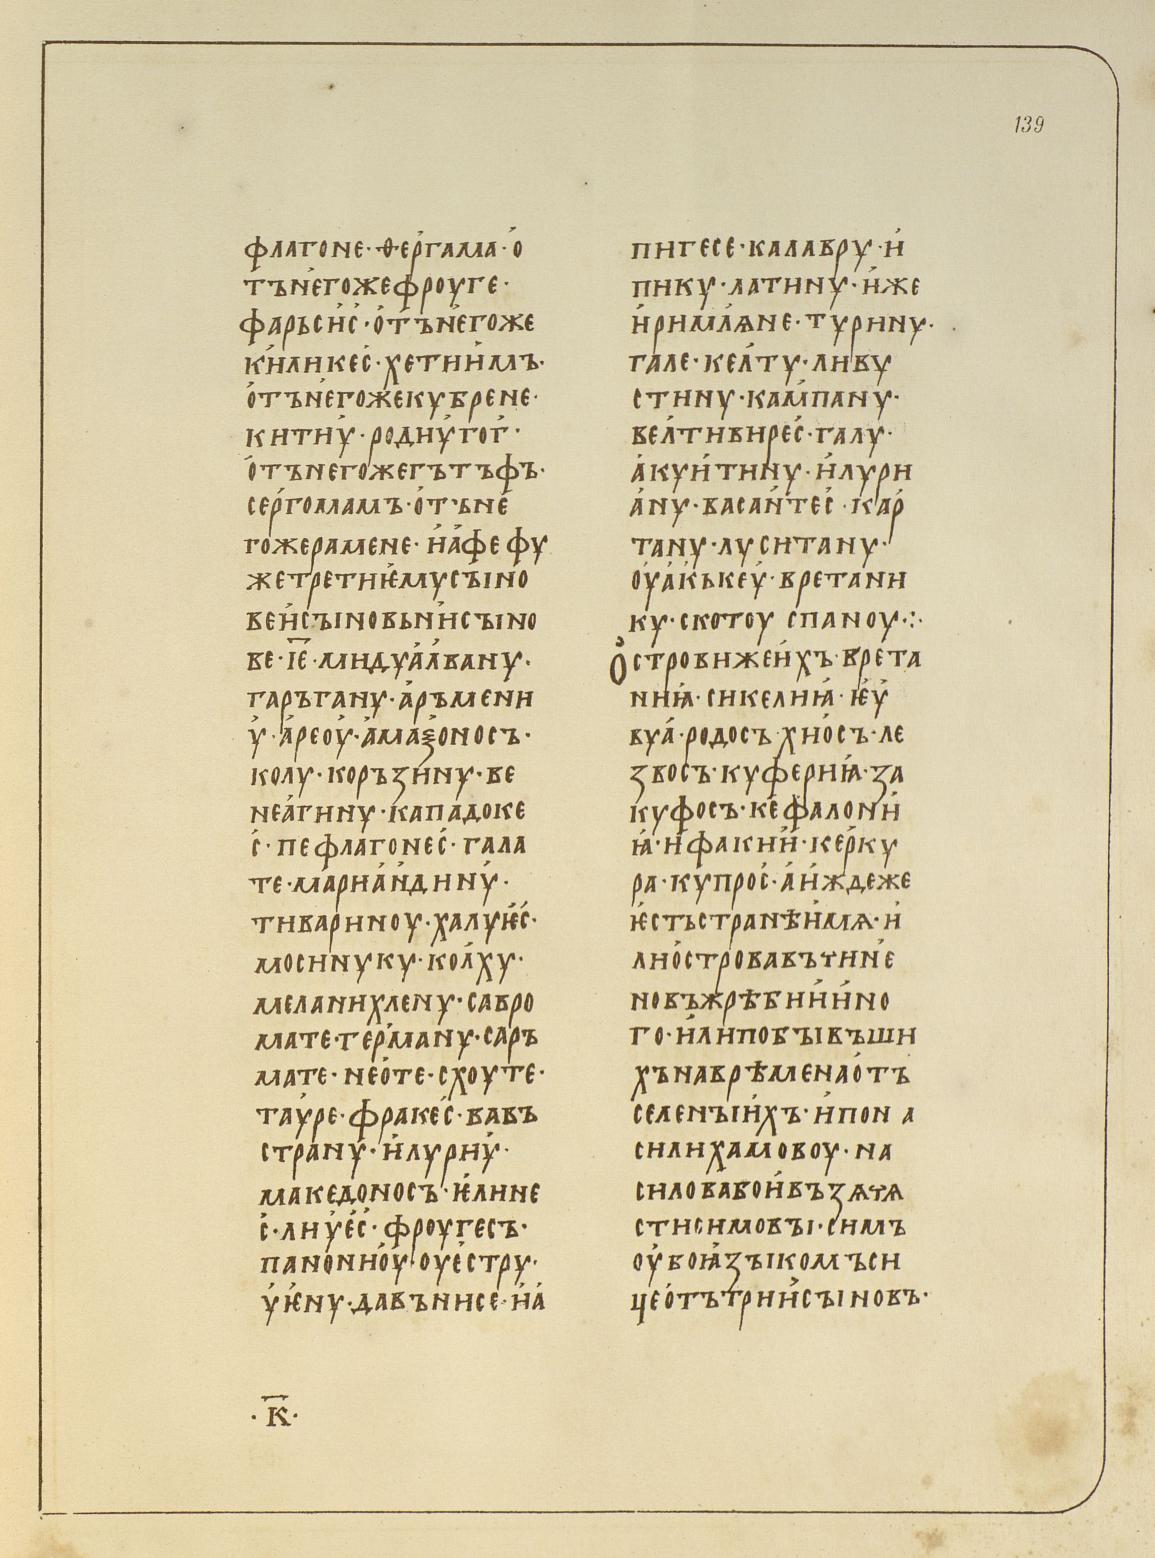 139
флагоне·ѳе́ргама·о́
тъне́гожефроуге·
фарьси́с́·о́тъне́гоже
ки́ликес́·хетии́мъ·
о́тъне́гожекубрене·
китиу́·родиу́гоѓ·
о́тънегожегътъфъ·
сер́гомамъ·о́тъне́
гожерамене·и́а́фефу
жетретиѥ́мусꙑно́
веи́сꙑновьни́сꙑно
ве·і҃е·мидуа́л́вану·
гаръгану·а́ръмени
у́·а́реоу́·а́маѯоносъ·
колу·коръзи́ну·ве
неа́гину·кападоке
с́·пефлагонес́·гала
те·ма́риа́н́дину́·
тивариноу·халуѥ́с́·
мосинуку·кол́ху·
меланихлену·савро
мате·гер́ману·саръ
мате·нео́те·схоуте·
тау́ре·фракес́·вавъ
страну́·и́луриу́·
македоносъ·ѥ́лине
с́·лиу́ес́·фроугесъ·
панониоу́·оуе́стру·
у́ѥ́ну·давъниcе·и́а́
·к҃·
пигесе·калавру·и́
пику·латину·и́же
и́римлꙗне·турину·
гале·кел́ту·ливу
стину·кам́пану·
вел́тивирес́·галу·
а́куи́тину·и́лури
а́ну·васан́тес́·кар́
тану·луситану·
оуа́ќькеу́·вретани
ку·скотоу спаноу·:·
О́стровижеи́хъ·врета
ниꙗ́·сикелиꙗ́·ѥ́у́
вуа́·родосъ·хио́съ·ле
звосъ·куферниꙗ́·за
куфосъ·ке́фалони́
ꙗ́·и́факии́·кер́ку
ра·купрос́·а́и́ждеже
ѥ́стьстранѣи́мѧ·и́
лио́стровавътине́
новъжрѣбии́и́но
го·и́ли́побꙑвъши
хънаврѣменао́тъ
селенꙑи́хъ·и́пон а
силихамовоу·на
силова́бои́възѧтѧ
стисимовꙑ·симъ
оу́боꙗ́зꙑкомъси
цео́тътрии́сꙑновъ·